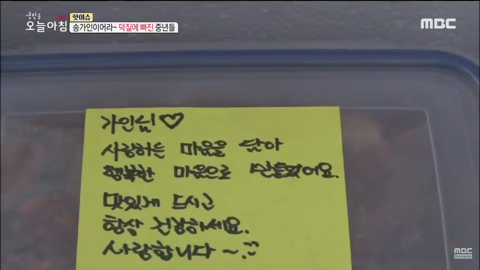 생방송 오늘아침
핫이슈
송가인이어라~ 덕질에 빠진 중년들
MBC
가인님♡
사랑하는 마음을 담아
행복한 마음으로 만들었어요.
맛있게 드시고
항상 건강하세요.
사랑합니다~.^^
MBC